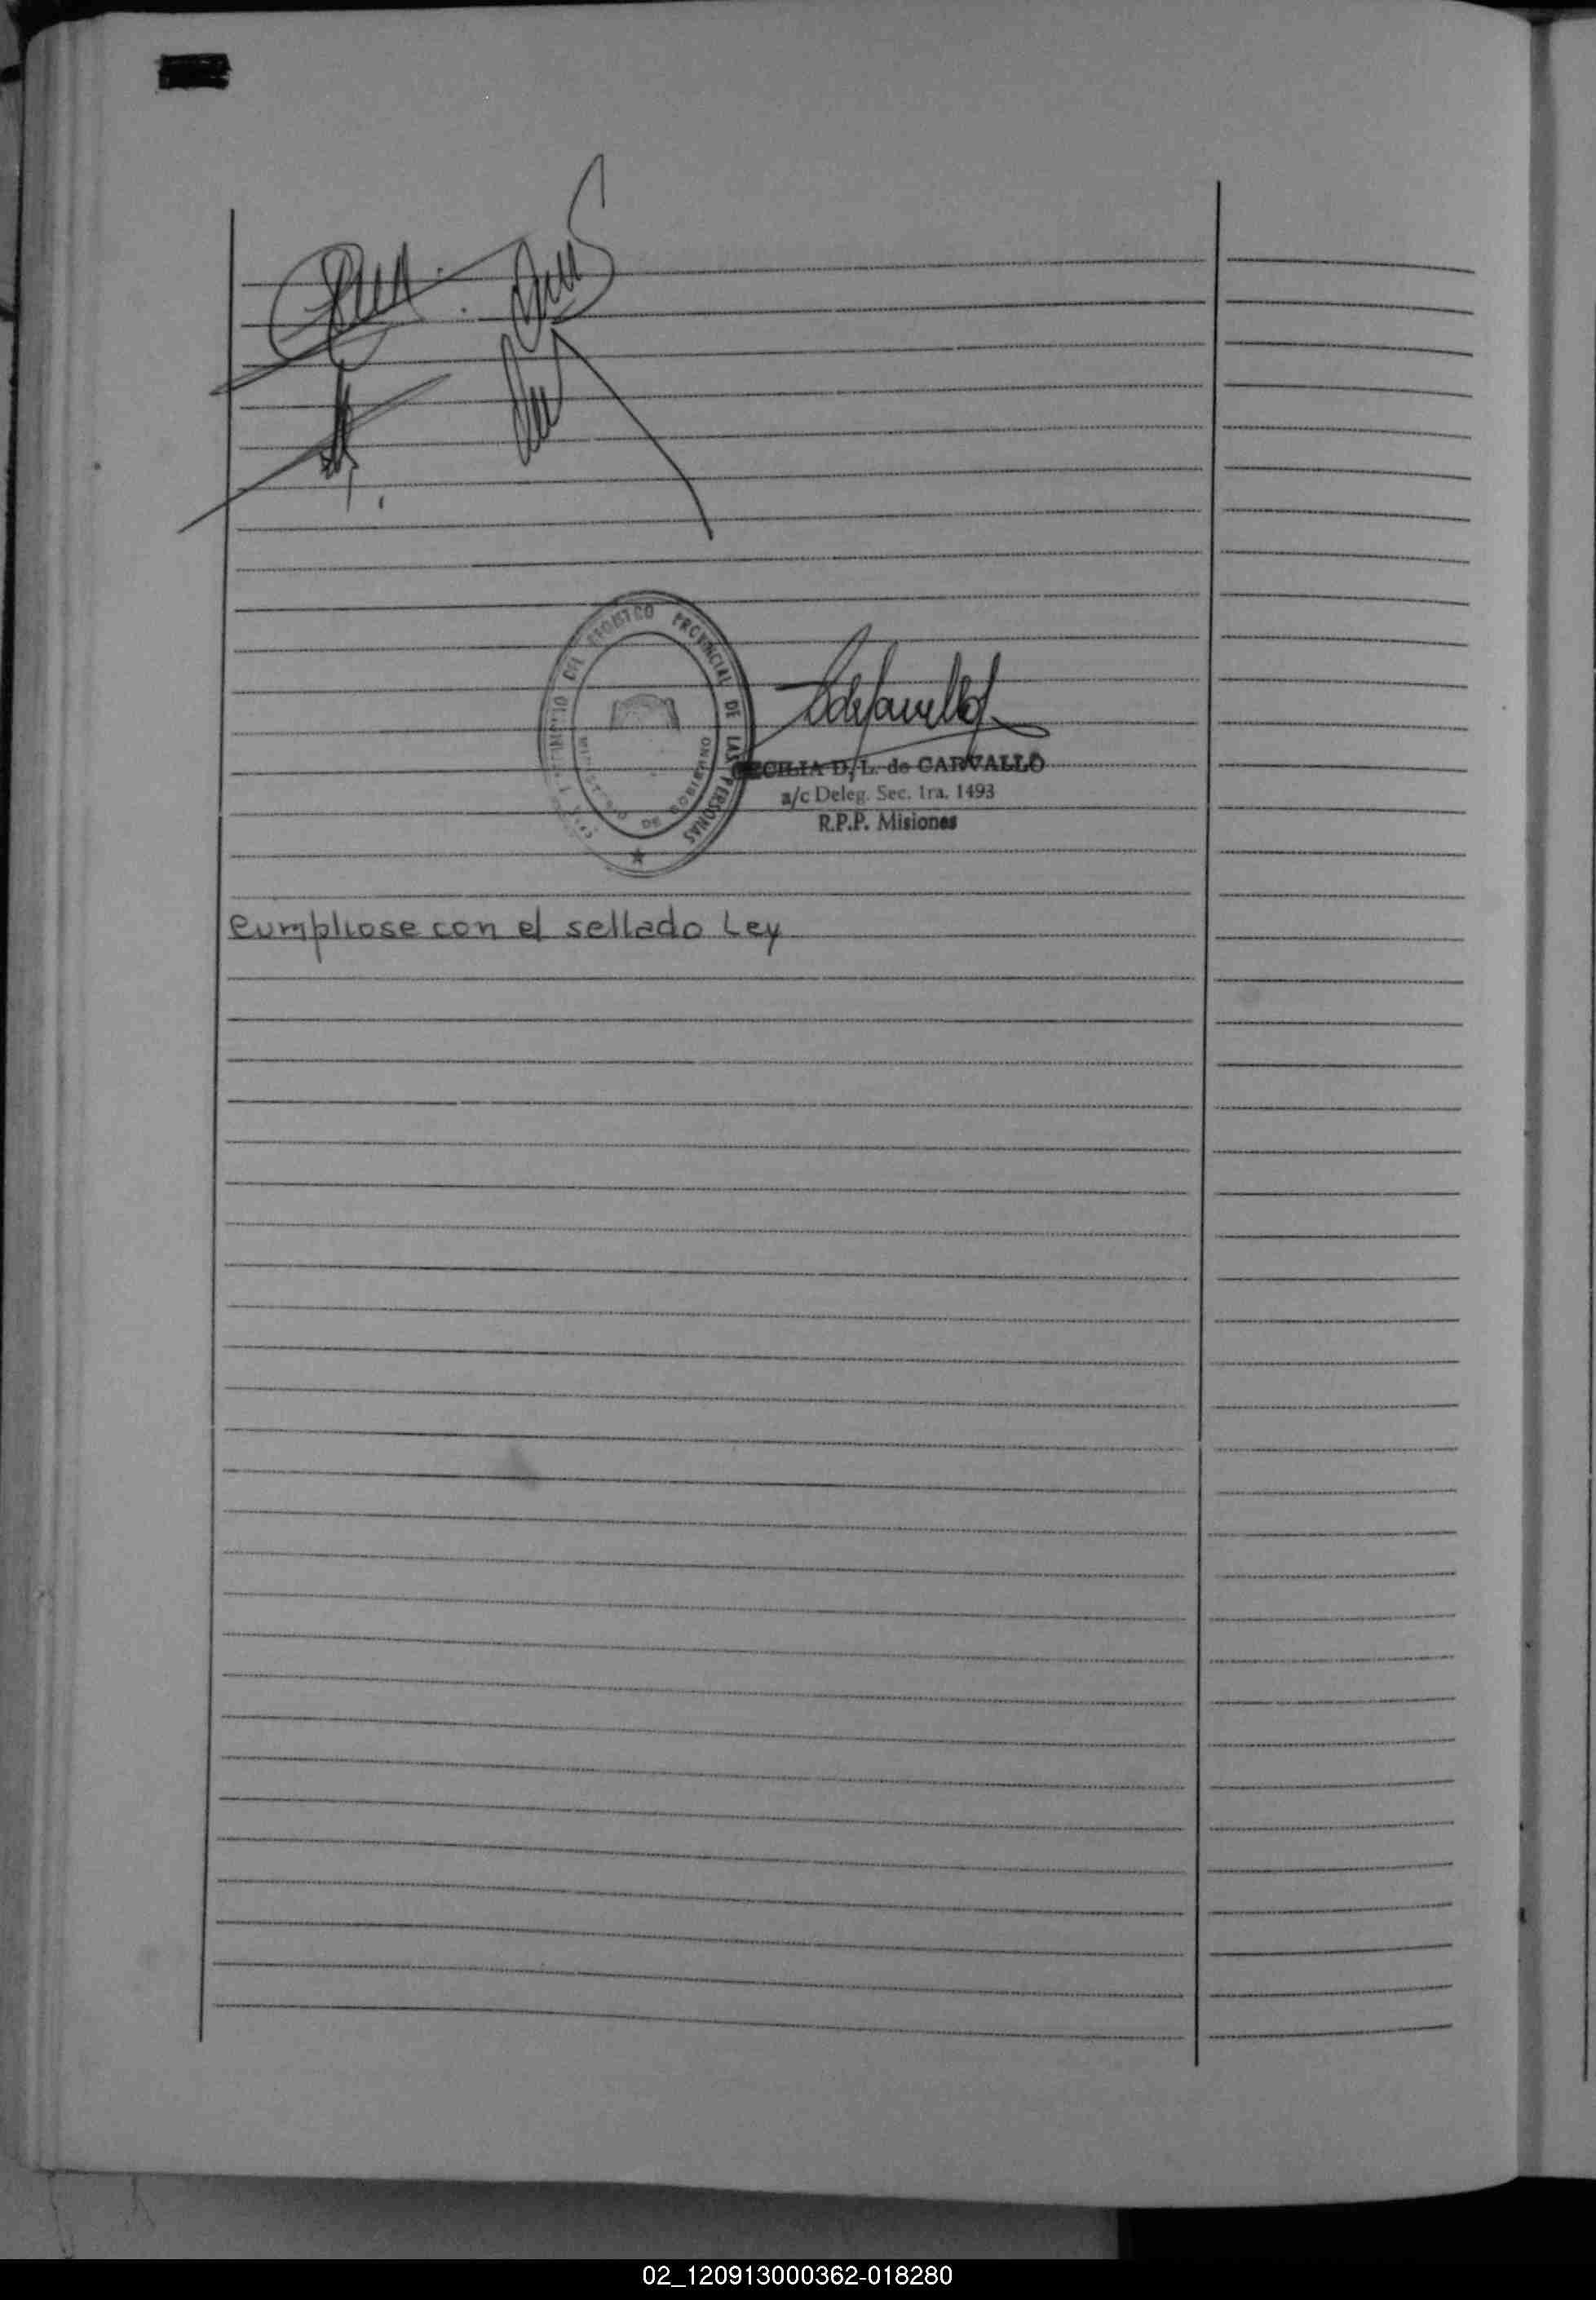 DEL REGISTRO PROVINCIAL DE LAS PERSONAS
MINISTERIO DE GOBIERNO
CECILIA D. L. de CARVALLO
a/c Deleg. Sec. 1ra. 1493
R.P.P. Misiones
Cumpliose con el sellado Ley
02_120913000362-018280